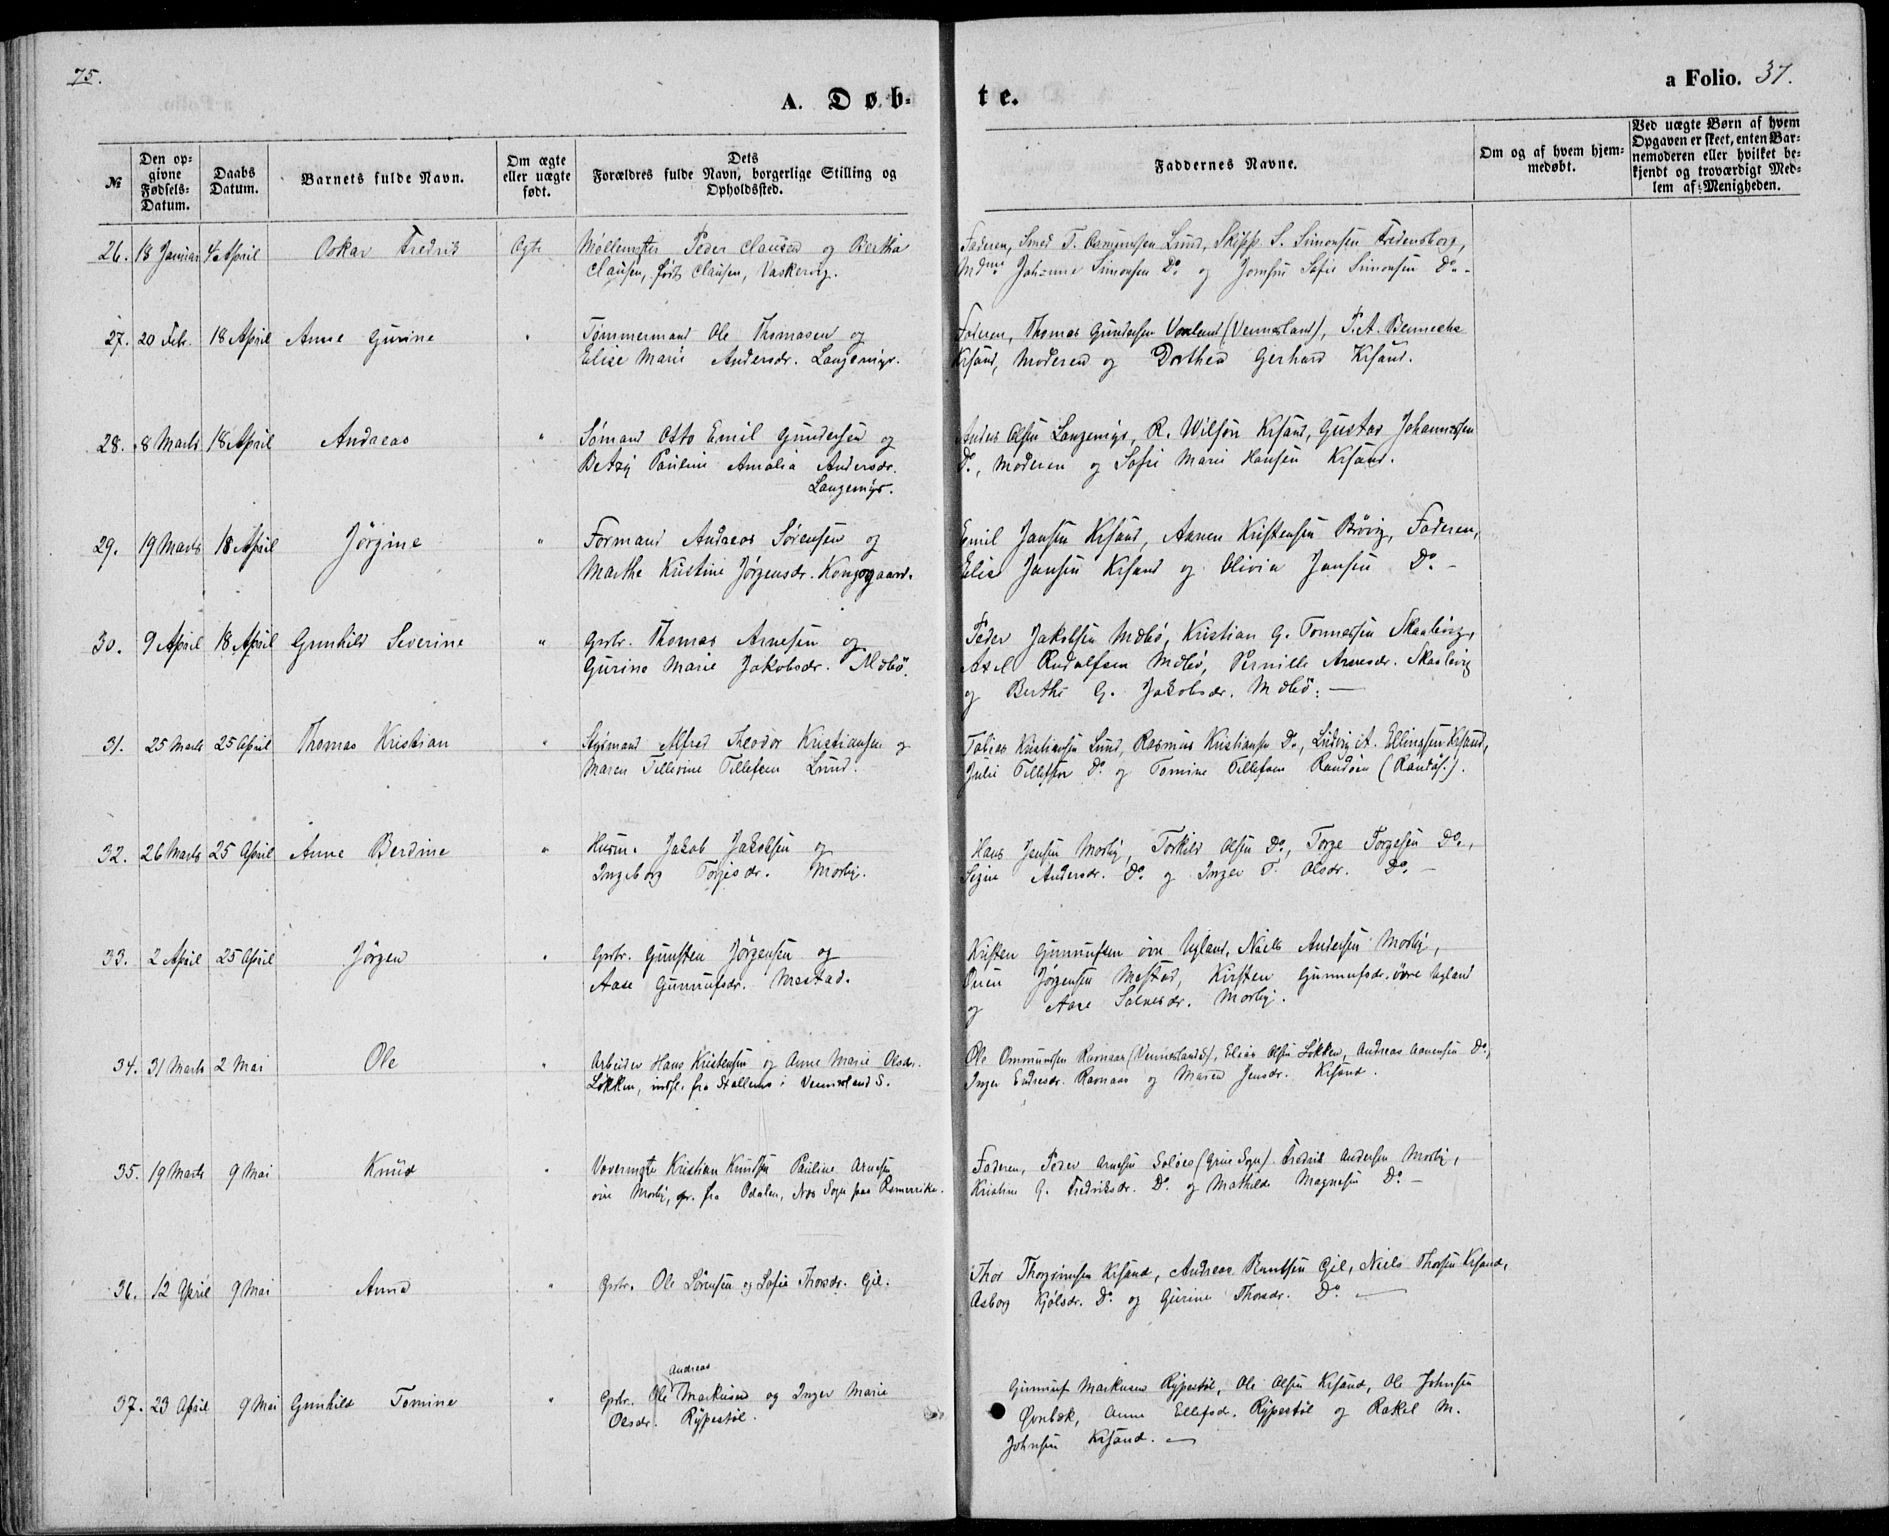 75.
A. Døb-
te.
a Folio. 37.
№
Den op-
givne
Fødsels-
Datum.
Daabs
Datum.
Barnets fulde Navn.
Om ægte
eller uægte
født.
Dets
Forældres fulde Navn, borgerlige Stilling og
Opholdssted.
Faddernes Navne.
Om og af hvem hjem-
medøbt.
Ved uægte Børn af hvem
Opgaven er skeet, enten Bar-
nemoderen eller hvilket be-
kjendt og troværdigt Med-
lem af Menigheden.
26. 18 Januar 4 April Oskar Fredrik Ægte Møllemster Peder Clausen og Bertha
Clausen, født Clausen, Vaskevig.
Faderen, Smed T. Osmundsen Lund, Skipp. S. Simonsen Fredensborg,
Mdme Johanne Simonsen Do. og Jomfru Sofie Simonsen Do. -
27. 20 Febr. 18 April Anne Gurine " Tømmermand Ole Thomasen og
Elise Marie Andersdr. Langemyr.
Faderen, Thomas Gundersen (Vennesland), P.A. Bennecke
Krsand, Moderen og Dorthea Gerhard Krsand.
28. 8 Marts 18 April Andreas " Sømand Otto Emil Gundersen og
Betzy Pauline Amalia Andersdr.
Langemyr.
Anders Olsen Langemyr, R. Wilson Krsand, Gustav Johannessen
Do., Moderen og Sofie Marie Hansen Krsand.
29. 19 Marts 18 April Jørgine " Formand Andreas Sørensen og
Marthe Kristine Jørgensdr. Kongsgaard.
Emil Jansen Krsand, Aanen Kristensen Brøvig, Faderen,
Elise Jansen Krsand og Olivia Jansen Do. -
30. 9 April 18 April Gunhild Severine " Grbr. Thomas Arnesen og
Gurine Marie Jakobsdr. Mæbø.
Peder Jakobsen Mæbø, Kristian G. Tønnessen Skaalevig,
Axel Rudolfsen Mæbø, Pernille Arnesdr. Skaalevig
og Berthe G. Jakobsdr. Mæbø. -
31. 25 Marts 25 April Thomas Kristian " Styrmand Alfred Theodor Kristiansen og
Maren Tellevine Tellefsen Lund.
Tobias Kristiansen Lund, Rasmus Kristiansen Do., Ludvig A. Ellingsen Krsand,
Julie Tellefsen Do. og Tomine Tellefsen Randøen (Randøs.).
32. 26 Marts 25 April Anne Berdine " Husm. Jakob Jakobsen og
Ingeborg Torjesdr. Mosby.
Hans Jensen Mosby, Torkild Olsen Do., Torge Torgesen Do.,
Signe Andersdr. Do. og Inger T. Olsdr. Do. -
33. 2 April 25 April Jørgen " Grbr. Gunsten Jørgensen og
Aase Gunnufsdr. Mestad.
Kristen Gunnufsen øvre Ugland, Niels Andersen Mosby,
Ouen Jørgensen Mestad, Kirsten Gunnufsdr. øvre Ugland
og Aase Salvesdr. Mosby.
34. 31 Marts 2 Mai Ole " Arbeider Hans Kristensen og Anne Marie Olsdr.
Løkken, indfl. fra Stallemo i Vennesland S.
Ole Ommundsen Ravnaas (Vennesland S), Elias Olsen Løkken, Andreas Aanensen Do.,
Inger Endresdr. Ravnaas og Maren Jensdr. Krsand.
35. 19 Marts 9 Mai Knud " Vævermster Kristian Knudsen Pauline Arnesen
øvre Mosby, fra Odalen, Næs Sogn paa Romerrike.
Faderen, Peder Arnesen Soløer (Grue Sogn). Fredrik Andersen Mosby,
Kristine G. Fredriksdr. Do. og Mathilde Magnesen Do. -
36. 12 April 9 Mai Anna " Grbr. Ole Sørensen og Sofie Thorsdr. Gil.
Thor Thorgrimsen Krsand, Andreas Knutsen Gil, Niels Thorsen Krsand,
Asborg Kjølsdr. Do. og Gurine Thorsdr. Do. -
37. 23 April 9 Mai Gunhild Tomine " Grbr. Ole Andreas Markusen og Inger Marie
Olsdr. Rypestøl.
Gunnuf Markusen Rypestøl, Ole Olsen Krsand, Ole Johnsen
Øvrebæk, Anne Ellefsdr. Rypestøl og Rakel M.
Johnsen Krsand. -